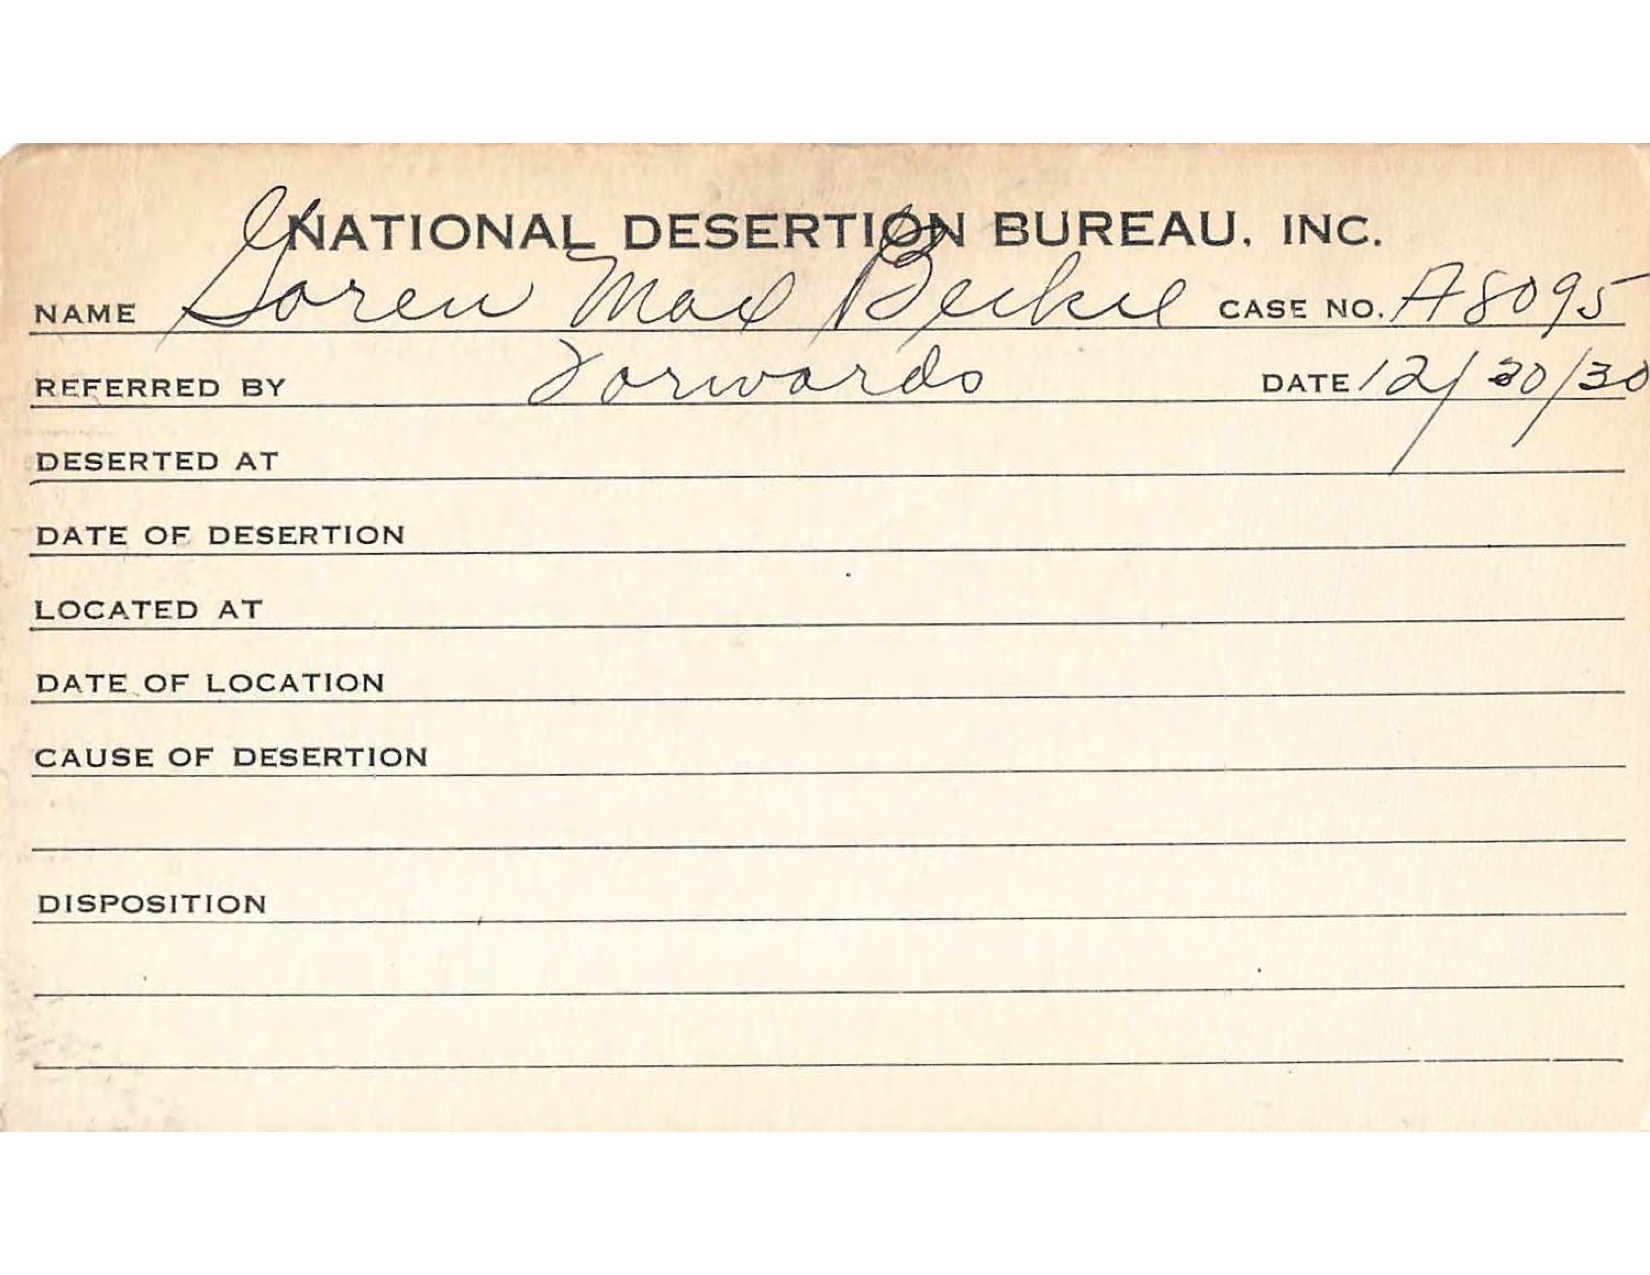 NATIONAL DESERTION BUREAU, INC.
NAME Goren Max Beckie CASE NO. A8095
REFERRED BY Forwards DATE 12/30/30
DESERTED AT
DATE OF DESERTION
LOCATED AT
DATE OF LOCATION
CAUSE OF DESERTION
DISPOSITION